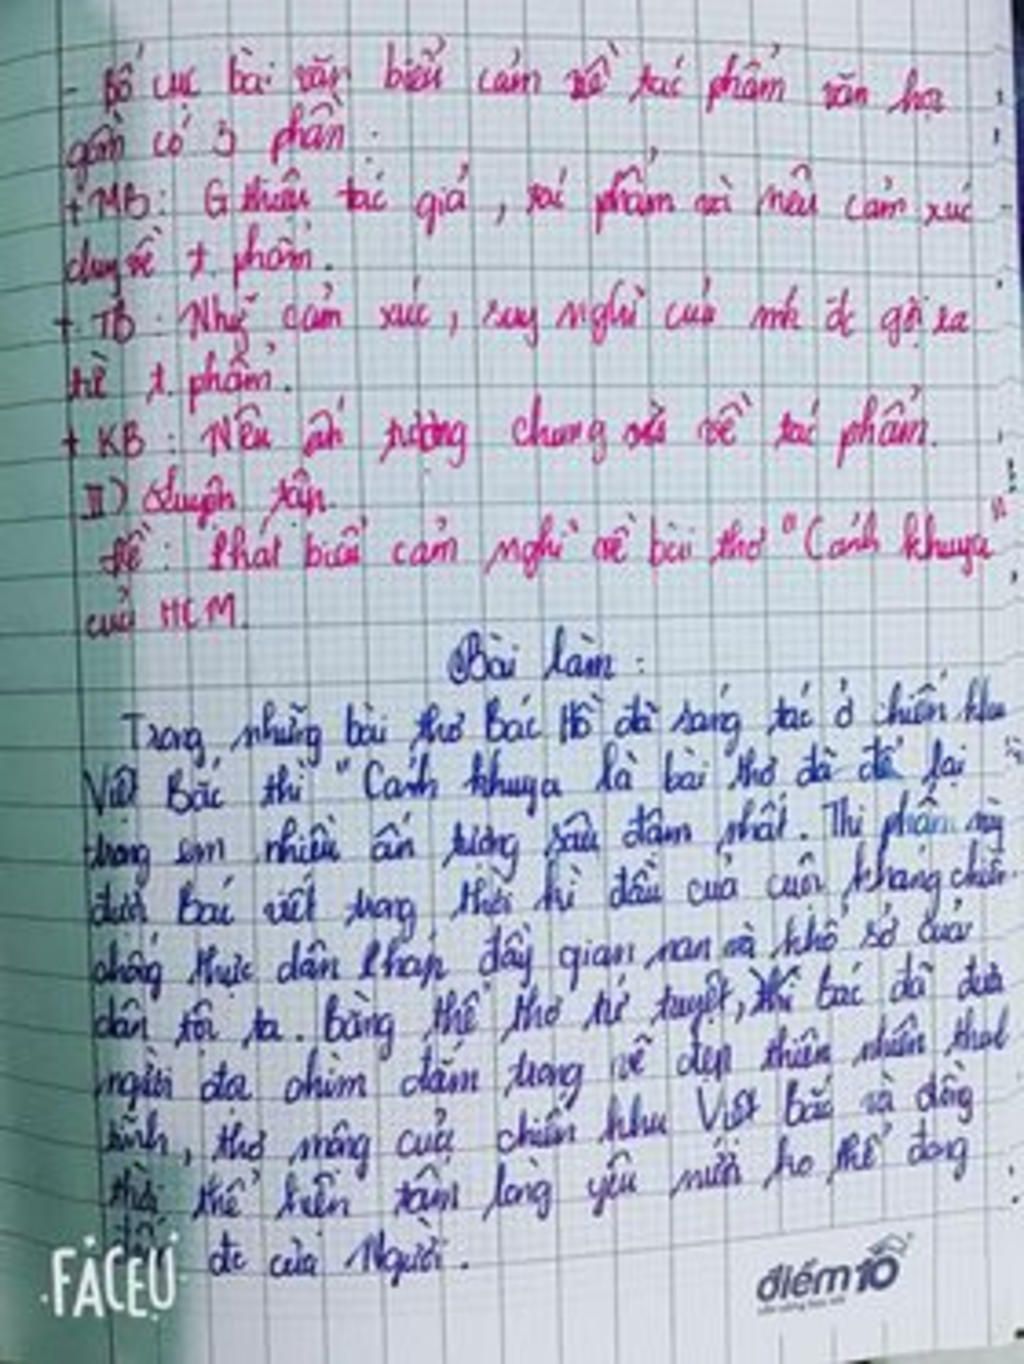 - Bố cục bài văn biểu cảm về tác phẩm văn học
gồm có 3 phần:
+ MB: G thiệu tác giả, tác phẩm và nêu cảm xúc
chung về t. phẩm.
+ TB: Nhữ cảm xúc, suy nghĩ của mk đc gợi ra
từ t. phẩm.
+ KB: Nêu ấn tượng chung về tác phẩm.
II) Luyện tập.
Đề: Phát biểu cảm nghĩ về bài thơ "Cảnh khuya"
của HCM.
Bài làm:
Trong những bài thơ Bác Hồ đã sáng tác ở chiến khu
Việt Bắc thì "Cảnh khuya là bài thơ đã để lại
trong em nhiều ấn tượng sâu đậm nhất. Thi phẩm này
được Bác viết trong thời kì đầu của cuộc kháng chiến
chống thực dân Pháp đầy gian nan và khổ sở của
dân tộc ta. Bằng thể thơ tứ tuyệt, thì Bác đã đưa
người đọc chìm đắm trong vẻ đẹp thiên nhiên
thơ mộng của chiến khu Việt Bắc và đồng
thời thể hiện tấm lòng yêu nước ko thể đong
đếm đc của Người.
FACEU
điểm10